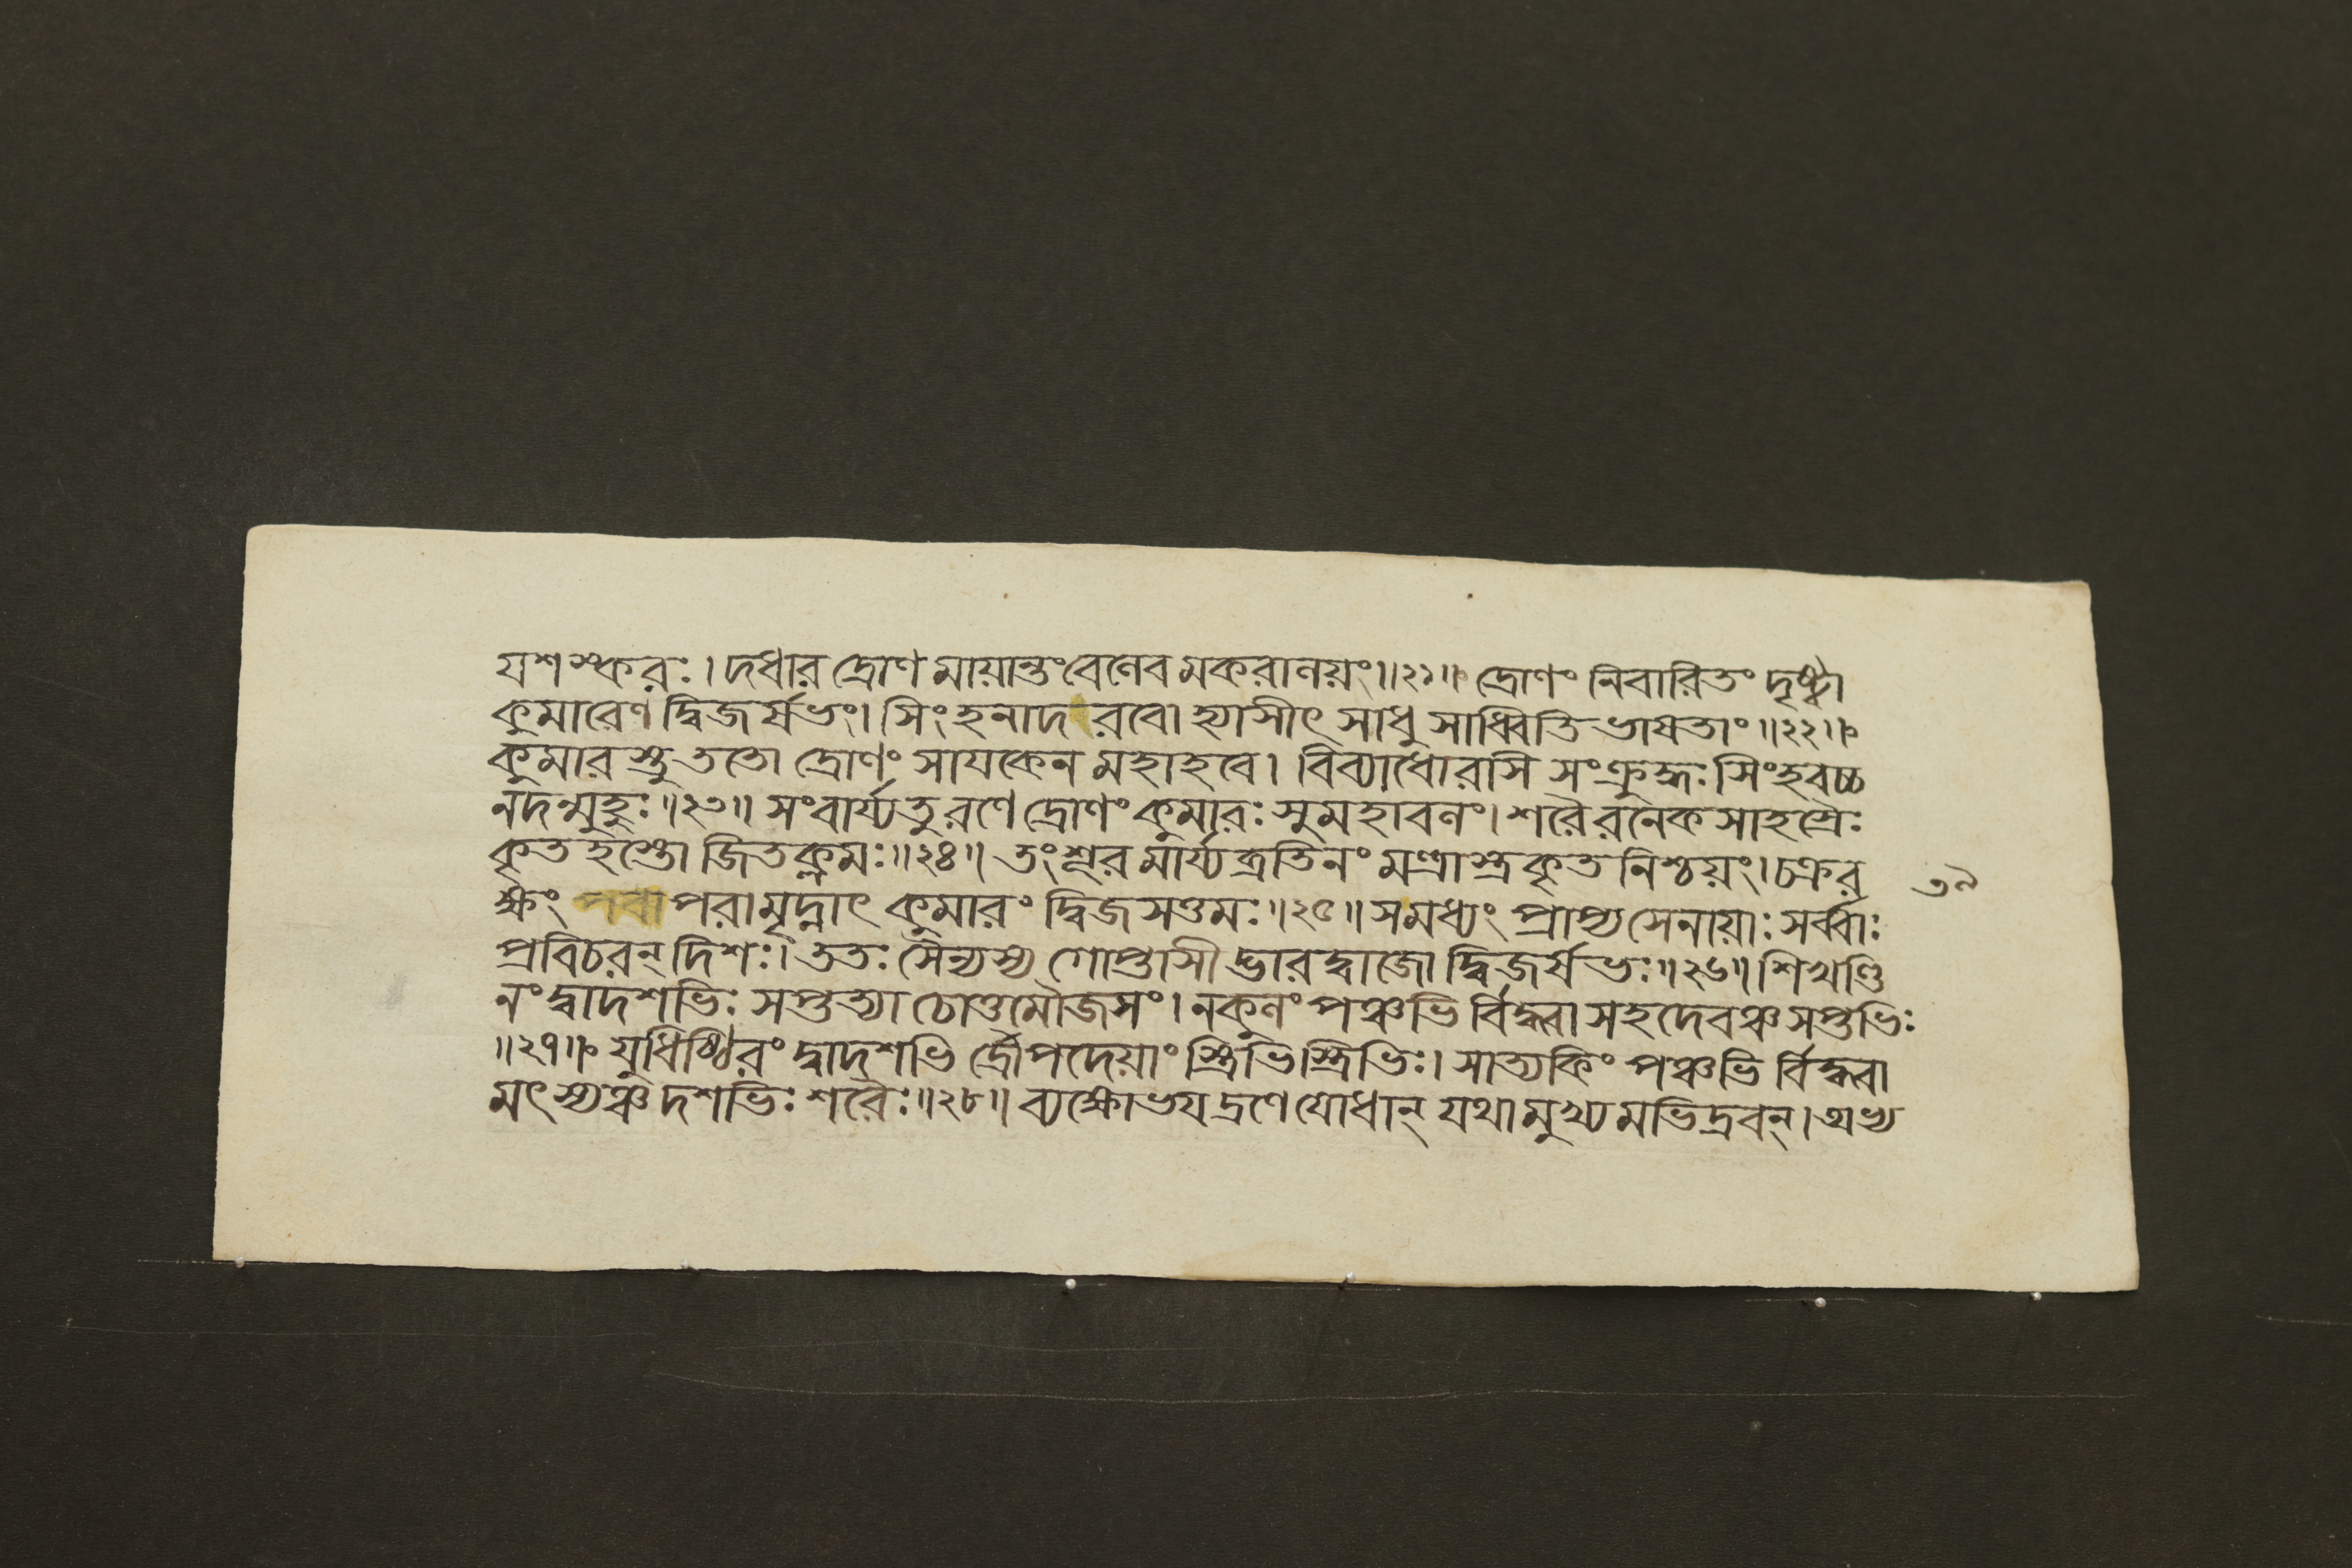 যশস্করঃ।দধার দ্রোণ মায়ান্তংবেলেব মকরালয়ং॥২১॥ দ্রোণং নিবারিতং দৃষ্ট্বা
কুমারেণ দ্বিজর্ষভং। সিংহনাদ রবো হ্যাসীৎ সাধু সাধ্বিতি ভাষতাং॥২২॥
কুমারস্তু ততো দ্রোণং সাযকেন মহাহবে। বিব্যাধোরসি সংক্রুদ্ধঃ সিংহবচ্চ
নদন্মুহুঃ॥২৩॥ সংবার্য্যতুরণে দ্রোণং কুমারঃ সুমহাবলং।শরৈরনেকসাহস্রৈঃ
কৃতহস্তো জিতক্লমঃ॥২৪॥ তংশূরমার্য্যব্রতিনং মন্ত্রাস্ত্রকৃতনিশ্চয়ং।চক্রর ৩৯
ক্ষং পরামৃদ্নাৎ কুমারং দ্বিজসত্তমঃ॥২৫॥ সমধ্যং প্রাপ্যসেনায়াঃ সর্ব্বাঃ
প্রবিচরন্ দিশঃ। ততঃ সৈন্যস্য গোপ্তাসীদ্ভারদ্বাজো দ্বিজর্ষভঃ॥২৬॥ শিখণ্ডি
নং দ্বাদশভিঃ সপ্তত্যা চোত্তমৌজসং। নকুলং পঞ্চভি র্বিদ্ধ্বা সহদেবঞ্চ সপ্তভিঃ
॥২৭॥ যুধিষ্ঠিরং দ্বাদশভি র্দ্রৌপদেয়াং স্ত্রিভিস্ত্রিভিঃ। সাত্যকিং পঞ্চভি র্বিদ্ধ্বা
মৎস্যঞ্চ দশভিঃ শরৈঃ॥২৮॥ ব্যক্ষোভযদ্রণে যোধান্ যথামুখ্য মভিদ্রবন্।অভ্য